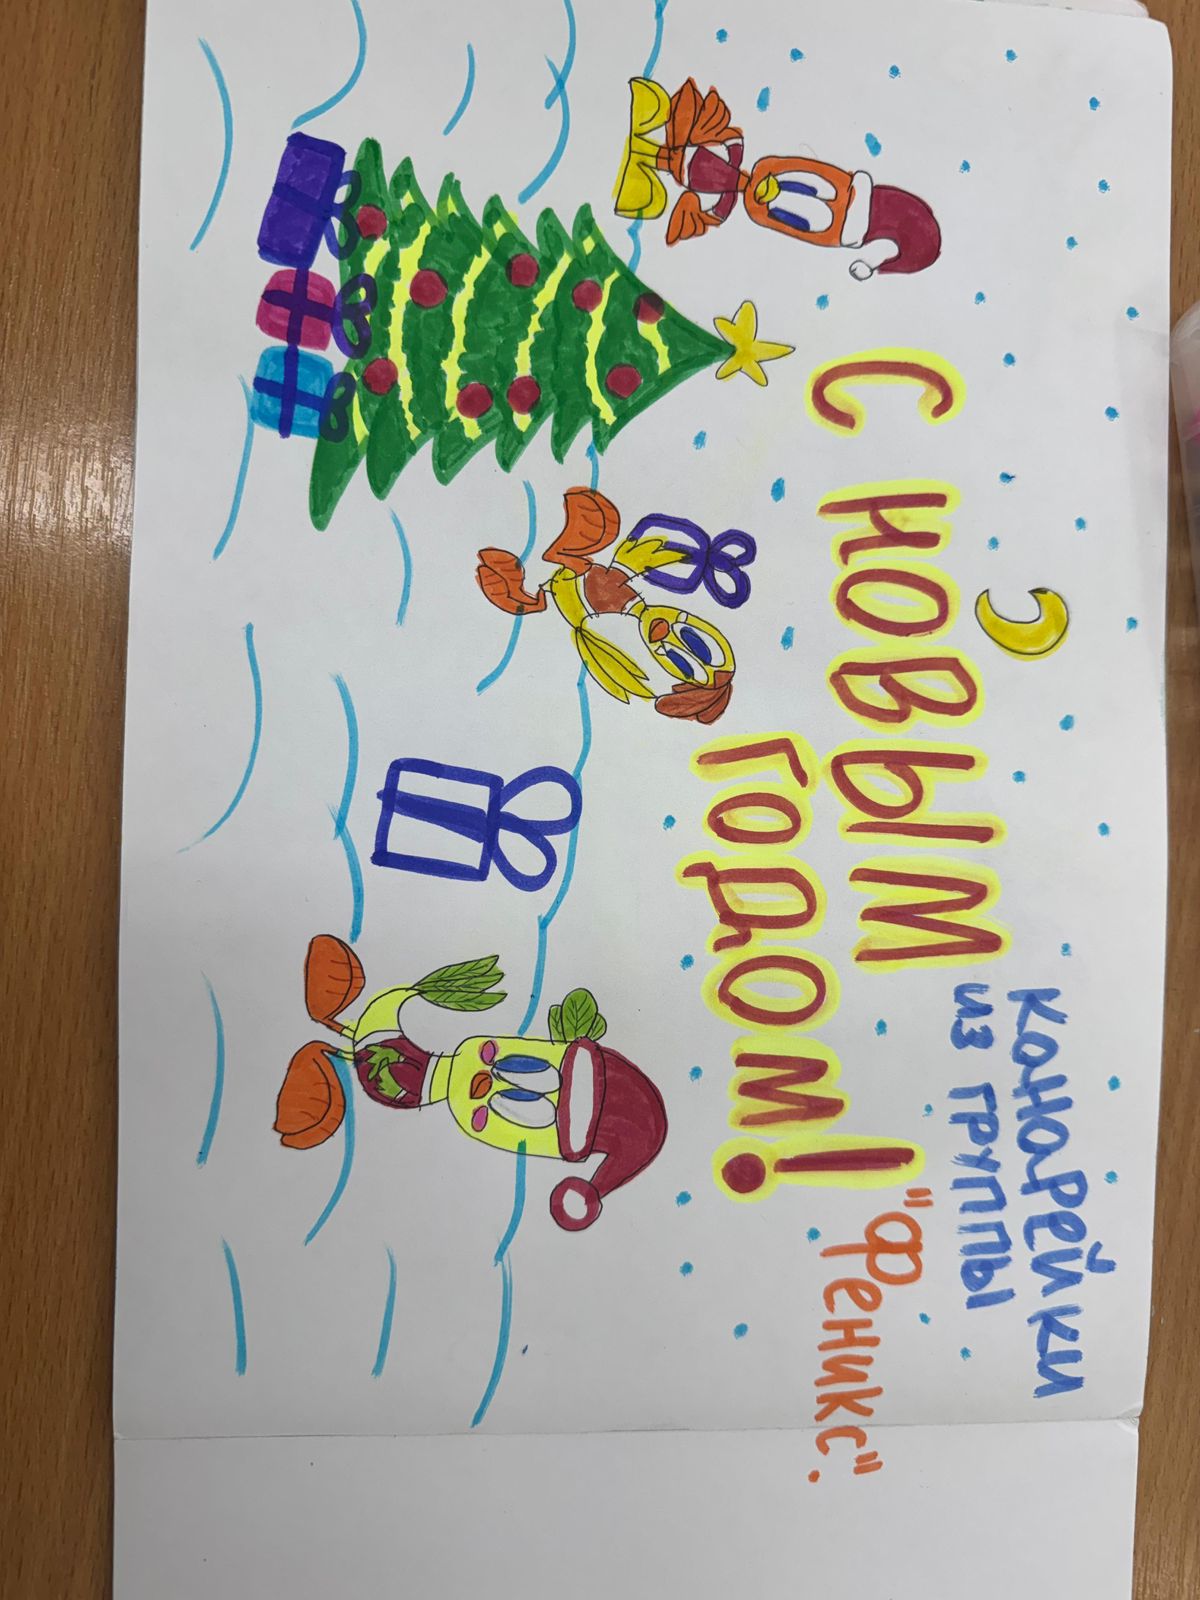 С НОВЫМ
ГОДОМ!
КАНАРЕЙКИ
ИЗ ГРУППЫ
"Феникс".